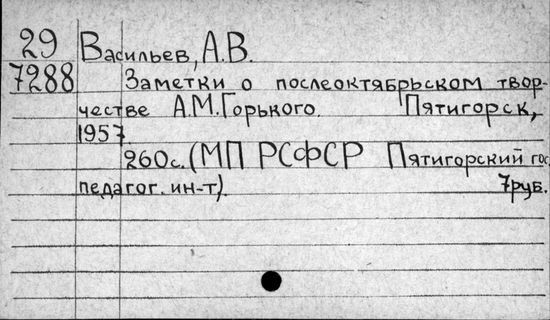 29 Васильев, А.В.
7288 Заметки о послеоктябрьском твор-
честве А.М.Горького. Пятигорск,
1957
260с. (МП РСФСР Пятигорский гос.
педагог. ин-т). 7руб.